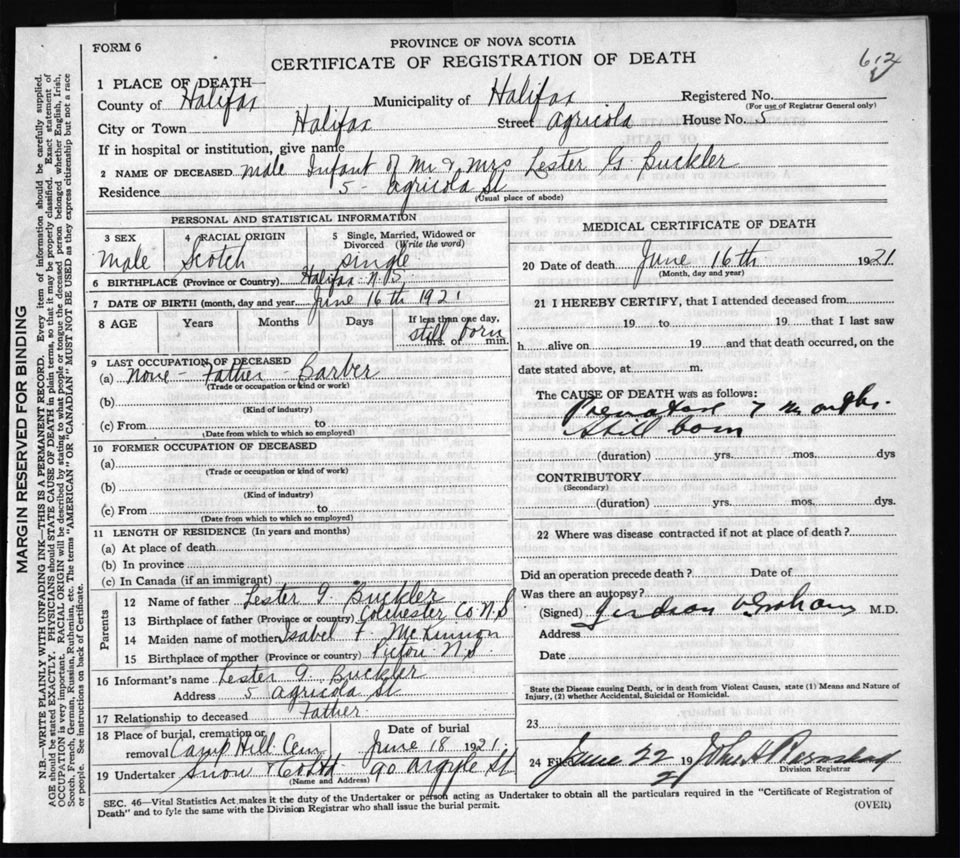 FORM 6
PROVINCE OF NOVA SCOTIA
CERTIFICATE OF REGISTRATION OF DEATH
612
1 PLACE OF DEATH—
County of Halifax Municipality of Halifax Registered No.
(For use of Registrar General only)
City or Town Halifax Street Agricola House No. 5
If in hospital or institution, give name
2 NAME OF DECEASED Male Infant of Mr & Mrs Lester G. Buckler
Residence 5 - Agricola St
(Usual place of abode)
PERSONAL AND STATISTICAL INFORMATION
3 SEX 4 RACIAL ORIGIN 5 Single, Married, Widowed or Divorced (Write the word)
Male Scotch Single
6 BIRTHPLACE (Province or Country) Halifax N.S.
7 DATE OF BIRTH (month, day and year) June 16th 1921
8 AGE Years Months Days If less than one day, hrs. or min.
Still born
9 LAST OCCUPATION OF DECEASED
(a) None - Father - Barber
(Trade or occupation or kind or work)
(b)
(Kind of industry)
(c) From to
(Date from which to which so employed)
10 FORMER OCCUPATION OF DECEASED
(a)
(Trade or occupation or kind of work)
(b)
(Kind of industry)
(c) From to
(Date from which to which so employed)
11 LENGTH OF RESIDENCE (In years and months)
(a) At place of death
(b) In province
(c) In Canada (if an immigrant)
Parents
12 Name of father Lester G. Buckler
13 Birthplace of father (Province or country) Colchester Co N.S
14 Maiden name of mother Isabel F. McKinnon
15 Birthplace of mother (Province or country) Pictou N.S.
16 Informant's name Lester G. Buckler
Address 5 Agricola St
17 Relationship to deceased Father
18 Place of burial, cremation or removal Camp Hill Cem Date of burial June 18 1921
19 Undertaker Snow & 90 Argyle St
(Name and Address)
MEDICAL CERTIFICATE OF DEATH
20 Date of death June 16th 1921
(Month, day and year)
21 I HEREBY CERTIFY, that I attended deceased from
19 to 19 that I last saw
h alive on 19 and that death occurred, on the
date stated above, at m.
The CAUSE OF DEATH was as follows:
Premature 7 months.
Still born
(duration) yrs. mos. dys
CONTRIBUTORY
(Secondary)
(duration) yrs. mos. dys.
22 Where was disease contracted if not at place of death?
Did an operation precede death? Date of
Was there an autopsy?
(Signed) Graham M.D.
Address
Date
State the Disease causing Death, or in death from Violent Causes, state (1) Means and Nature of Injury, (2) whether Accidental, Suicidal or Homicidal.
23
24 Filed June 22 1921 John H
Division Registrar
SEC. 46—Vital Statistics Act makes it the duty of the Undertaker or person acting as Undertaker to obtain all the particulars required in the "Certificate of Registration of
Death" and to fyle the same with the Division Registrar who shall issue the burial permit.
(OVER)
MARGIN RESERVED FOR BINDING
N.B.—WRITE PLAINLY WITH UNFADING INK—THIS IS A PERMANENT RECORD. Every item of information should be carefully supplied.
AGE should be stated EXACTLY. PHYSICIANS should STATE CAUSE OF DEATH in plain terms, so that it may be properly classified. Exact statement of
OCCUPATION is very important. RACIAL ORIGIN will be described by stating to what people or tongue the deceased person belonged whether English, Irish,
Scotch, French, German, Russian, Ruthenian, etc. The terms "AMERICAN" OR "CANADIAN" MUST NOT BE USED as they express citizenship but not a race
or people. See instructions on back of Certificate.